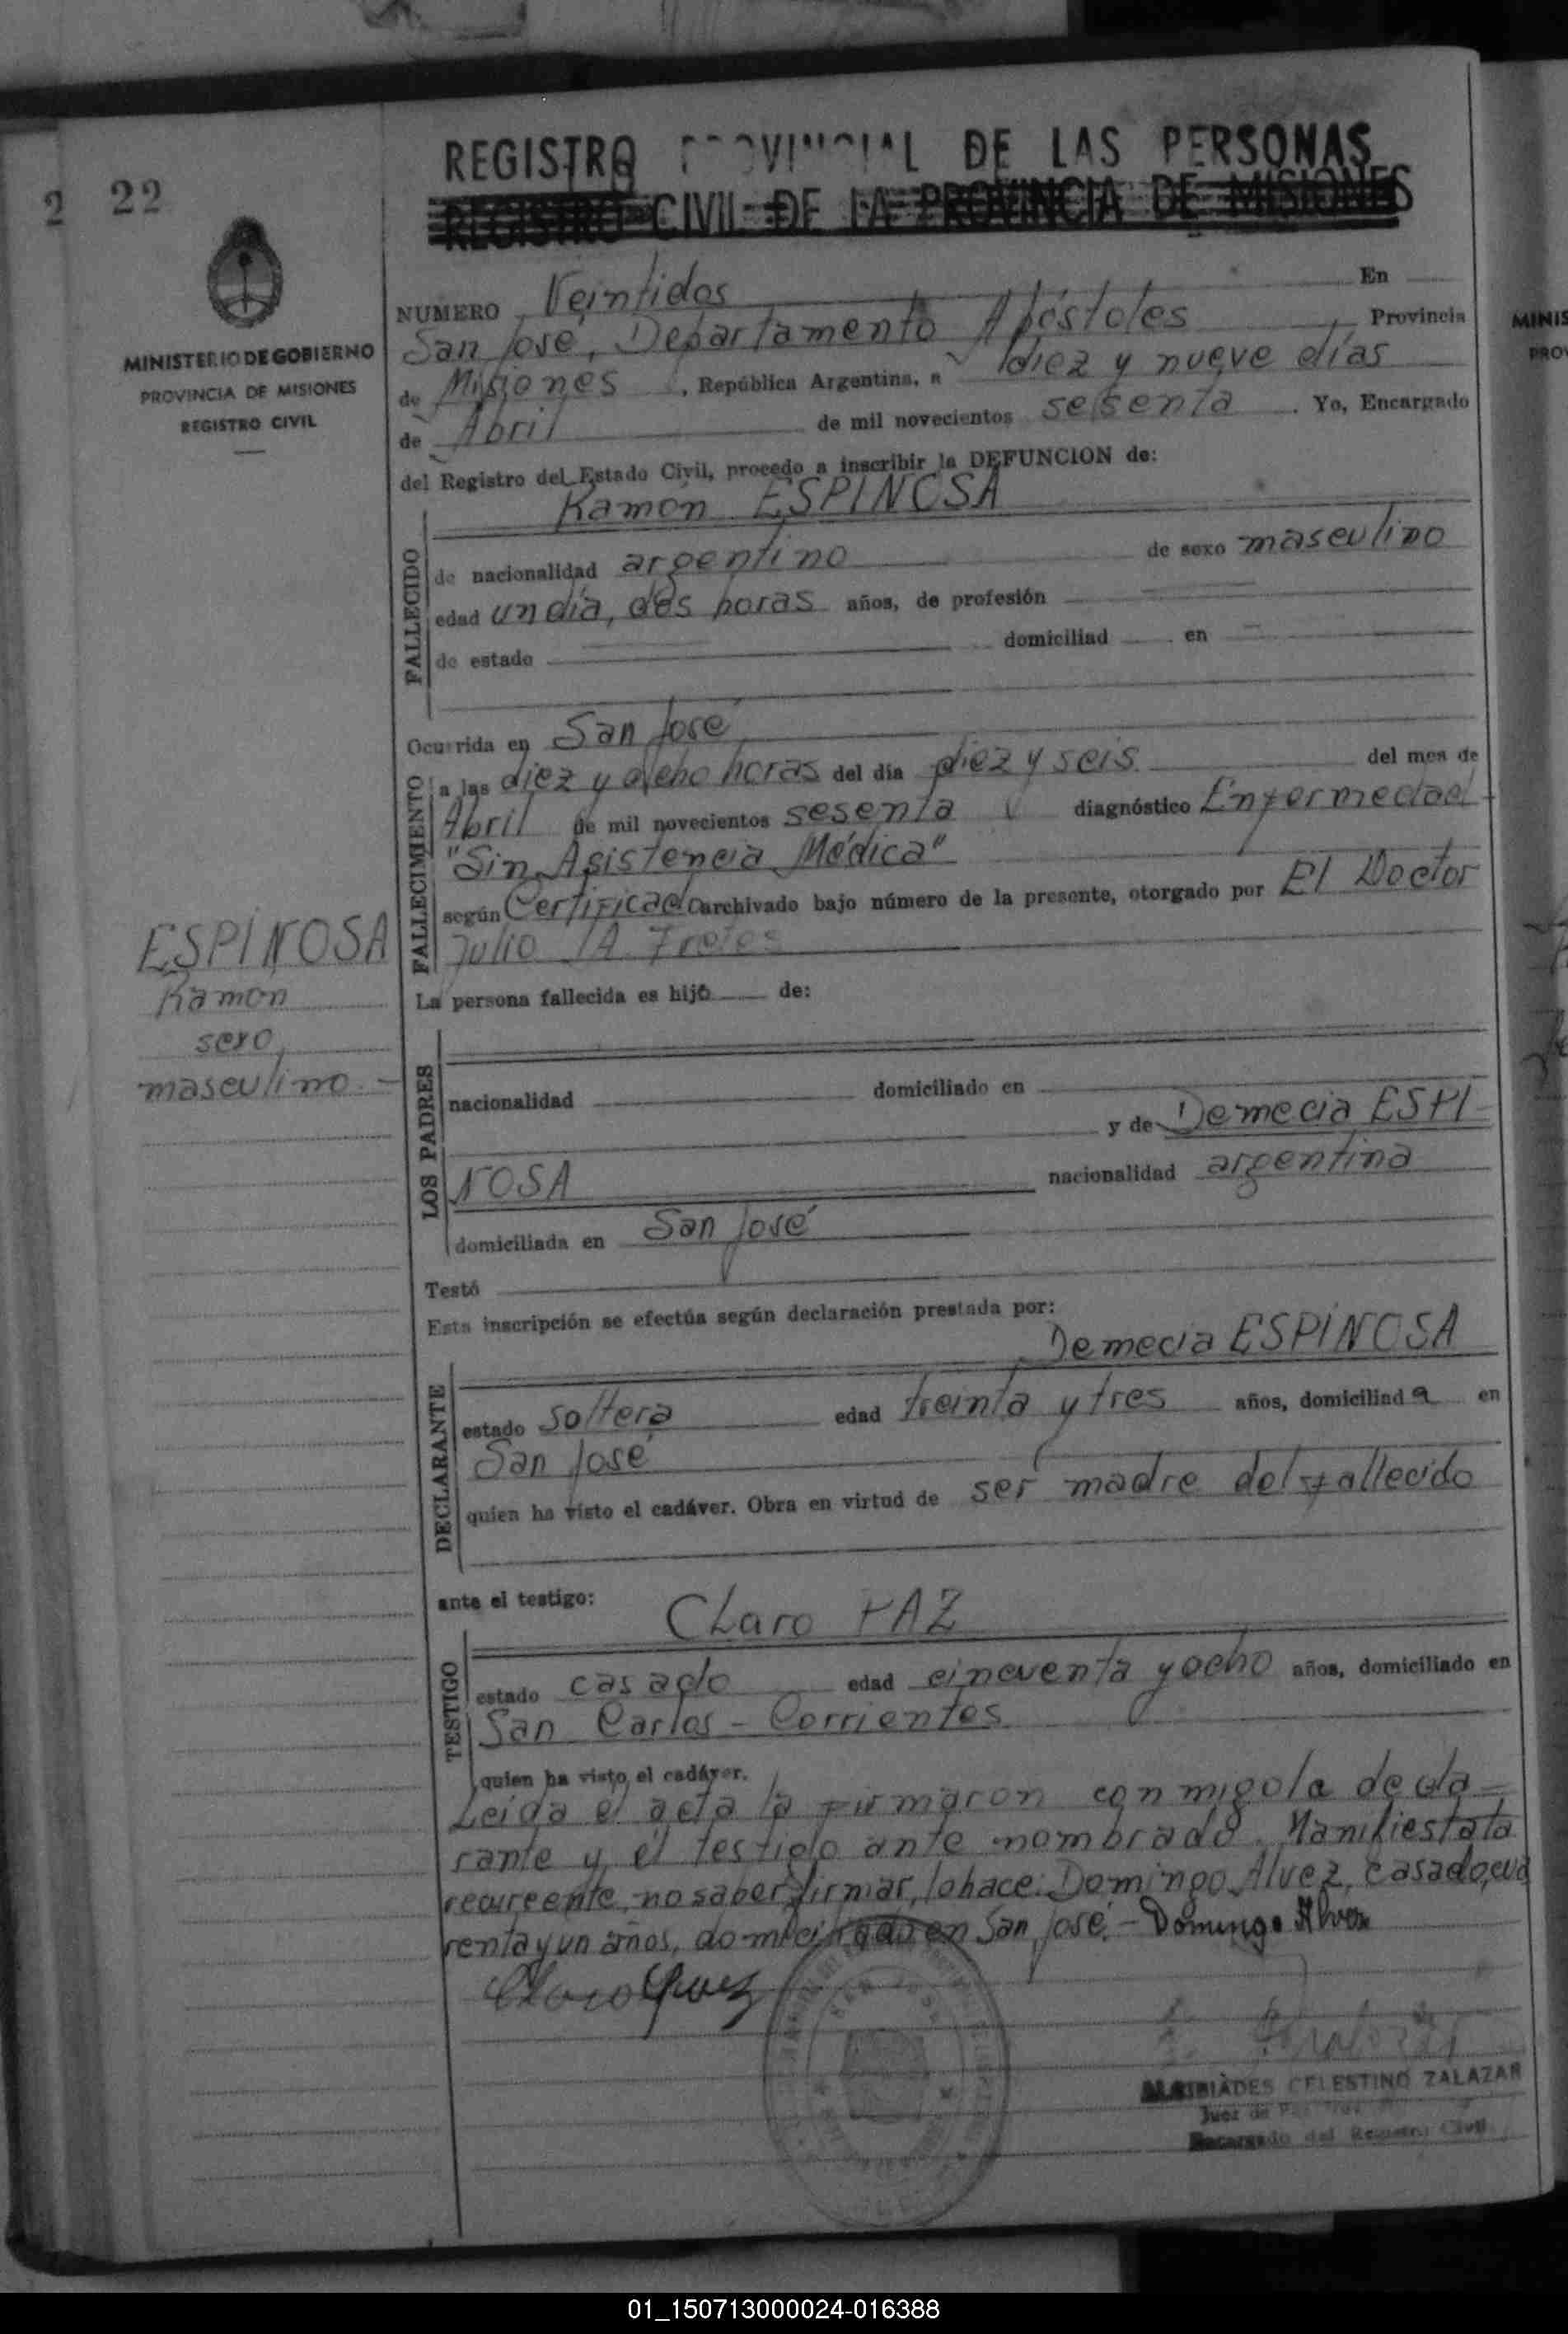 REGISTRO PROVINCIAL DE LAS PERSONAS
REGISTRO CIVIL DE LA PROVINCIA DE MISIONES
2 22
MINISTERIO DE GOBIERNO
PROVINCIA DE MISIONES
REGISTRO CIVIL
NUMERO Veintidos En
San José, Departamento Apóstoles, Provincia
de Misiones, República Argentina, a diez y nueve días
de Abril de mil novecientos sesenta. Yo, Encargado
del Registro del Estado Civil, procedo a inscribir la DEFUNCION de:
Ramón ESPINOSA
FALLECIDO
de nacionalidad argentino de sexo masculino
edad un día, dos horas años, de profesión
de estado domiciliad en
Ocurrida en San José
FALLECIMIENTO
a las diez y ocho horas del día diez y seis del mes de
Abril de mil novecientos sesenta diagnóstico Enfermedad
"Sin Asistencia Médica"
según Certificado archivado bajo número de la presente, otorgado por El Doctor
Julio A.
La persona fallecida es hijo de:
ESPINOSA
Ramon
sexo
masculino.-
LOS PADRES
nacionalidad domiciliado en
y de Demecia ESPI-
NOSA nacionalidad argentina
domiciliada en San José
Testó
Esta inscripción se efectúa según declaración prestada por:
Demecia ESPINOSA
DECLARANTE
estado soltera edad treinta y tres años, domiciliada en
San José
quien ha visto el cadáver. Obra en virtud de ser madre del fallecido
ante el testigo:
Claro PAZ
TESTIGO
estado casado edad cincuenta y ocho años, domiciliado en
San Carlos - Corrientes
quien ha visto el cadáver.
Leída el acta la firmaron conmigo la decla-
rante y el testigo ante nombrado. Manifiesta la
recureente, no saber firmar, lo hace: Domingo Alvez, casado, cua
renta y un años, domiciliado en San José.- Domingo Alvez
ALCIBIADES CELESTINO ZALAZAR
Juez de Paz
Encargado del Registro Civil
01_150713000024-016388